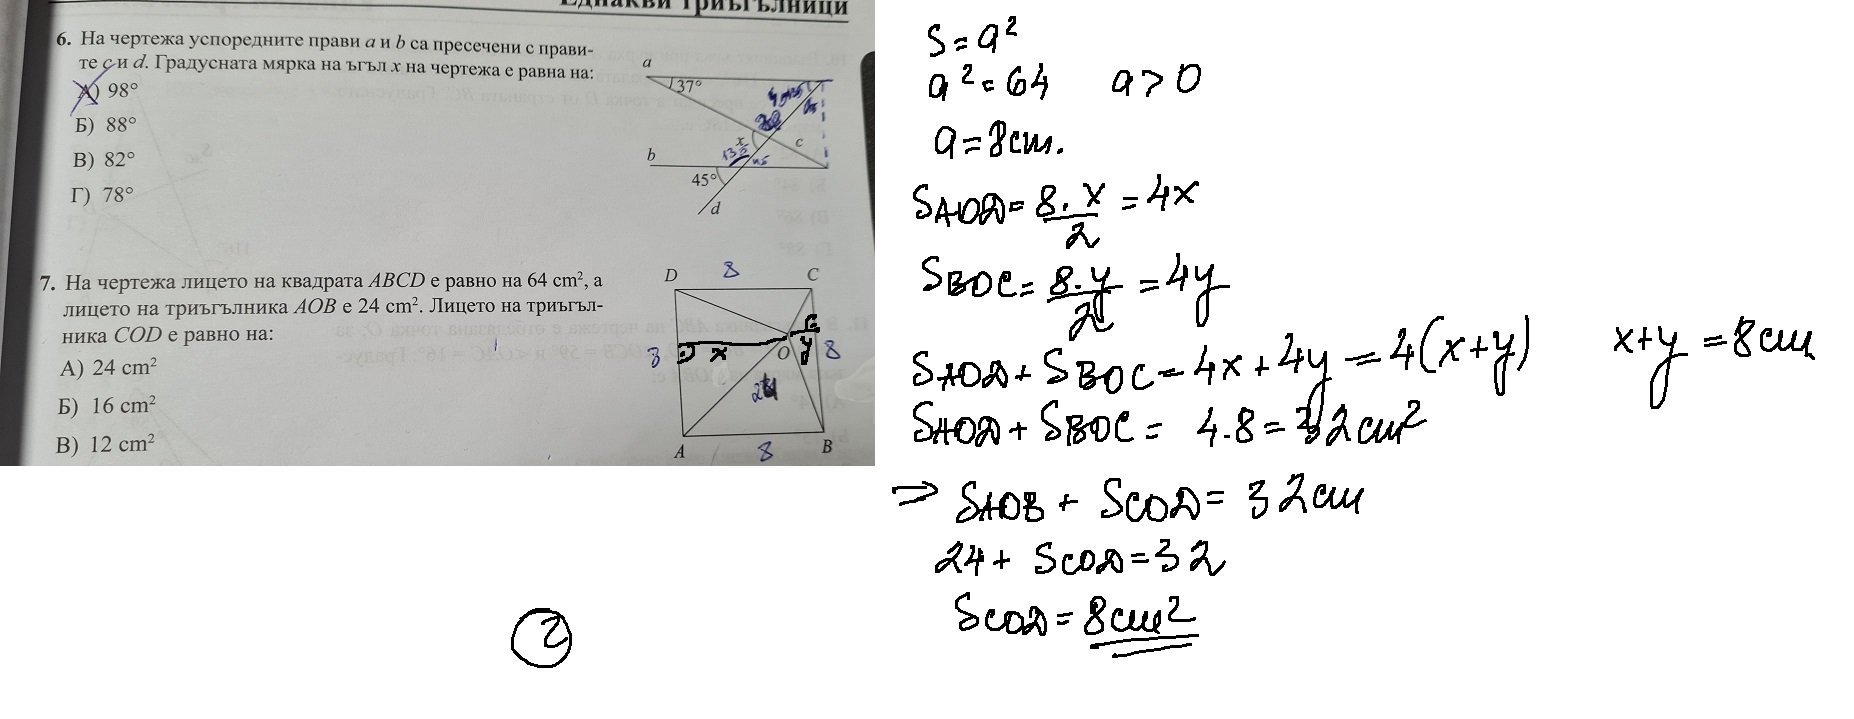 Еднакви триъгълници
6. На чертежа успоредните прави a и b са пресечени с прави-
те c и d. Градусната мярка на ъгъл x на чертежа е равна на:
А) 98°
Б) 88°
В) 82°
Г) 78°
a
37°
x
c
b
45°
d
7. На чертежа лицето на квадрата ABCD е равно на 64 cm², а
лицето на триъгълника AOB е 24 cm². Лицето на триъгъл-
ника COD е равно на:
А) 24 cm²
Б) 16 cm²
В) 12 cm²
D 8 C
8 x O y 8
24
A 8 B
2
S = a²
a² = 64 a > 0
a = 8cm.
SAOD = 8.x/2 = 4x
SBOC = 8.y/2 = 4y
SAOD + SBOC = 4x + 4y = 4(x+y) x+y = 8cm
SAOD + SBOC = 4.8 = 32cm²
=> SAOB + SCOD = 32cm
24 + SCOD = 32
SCOD = 8cm²